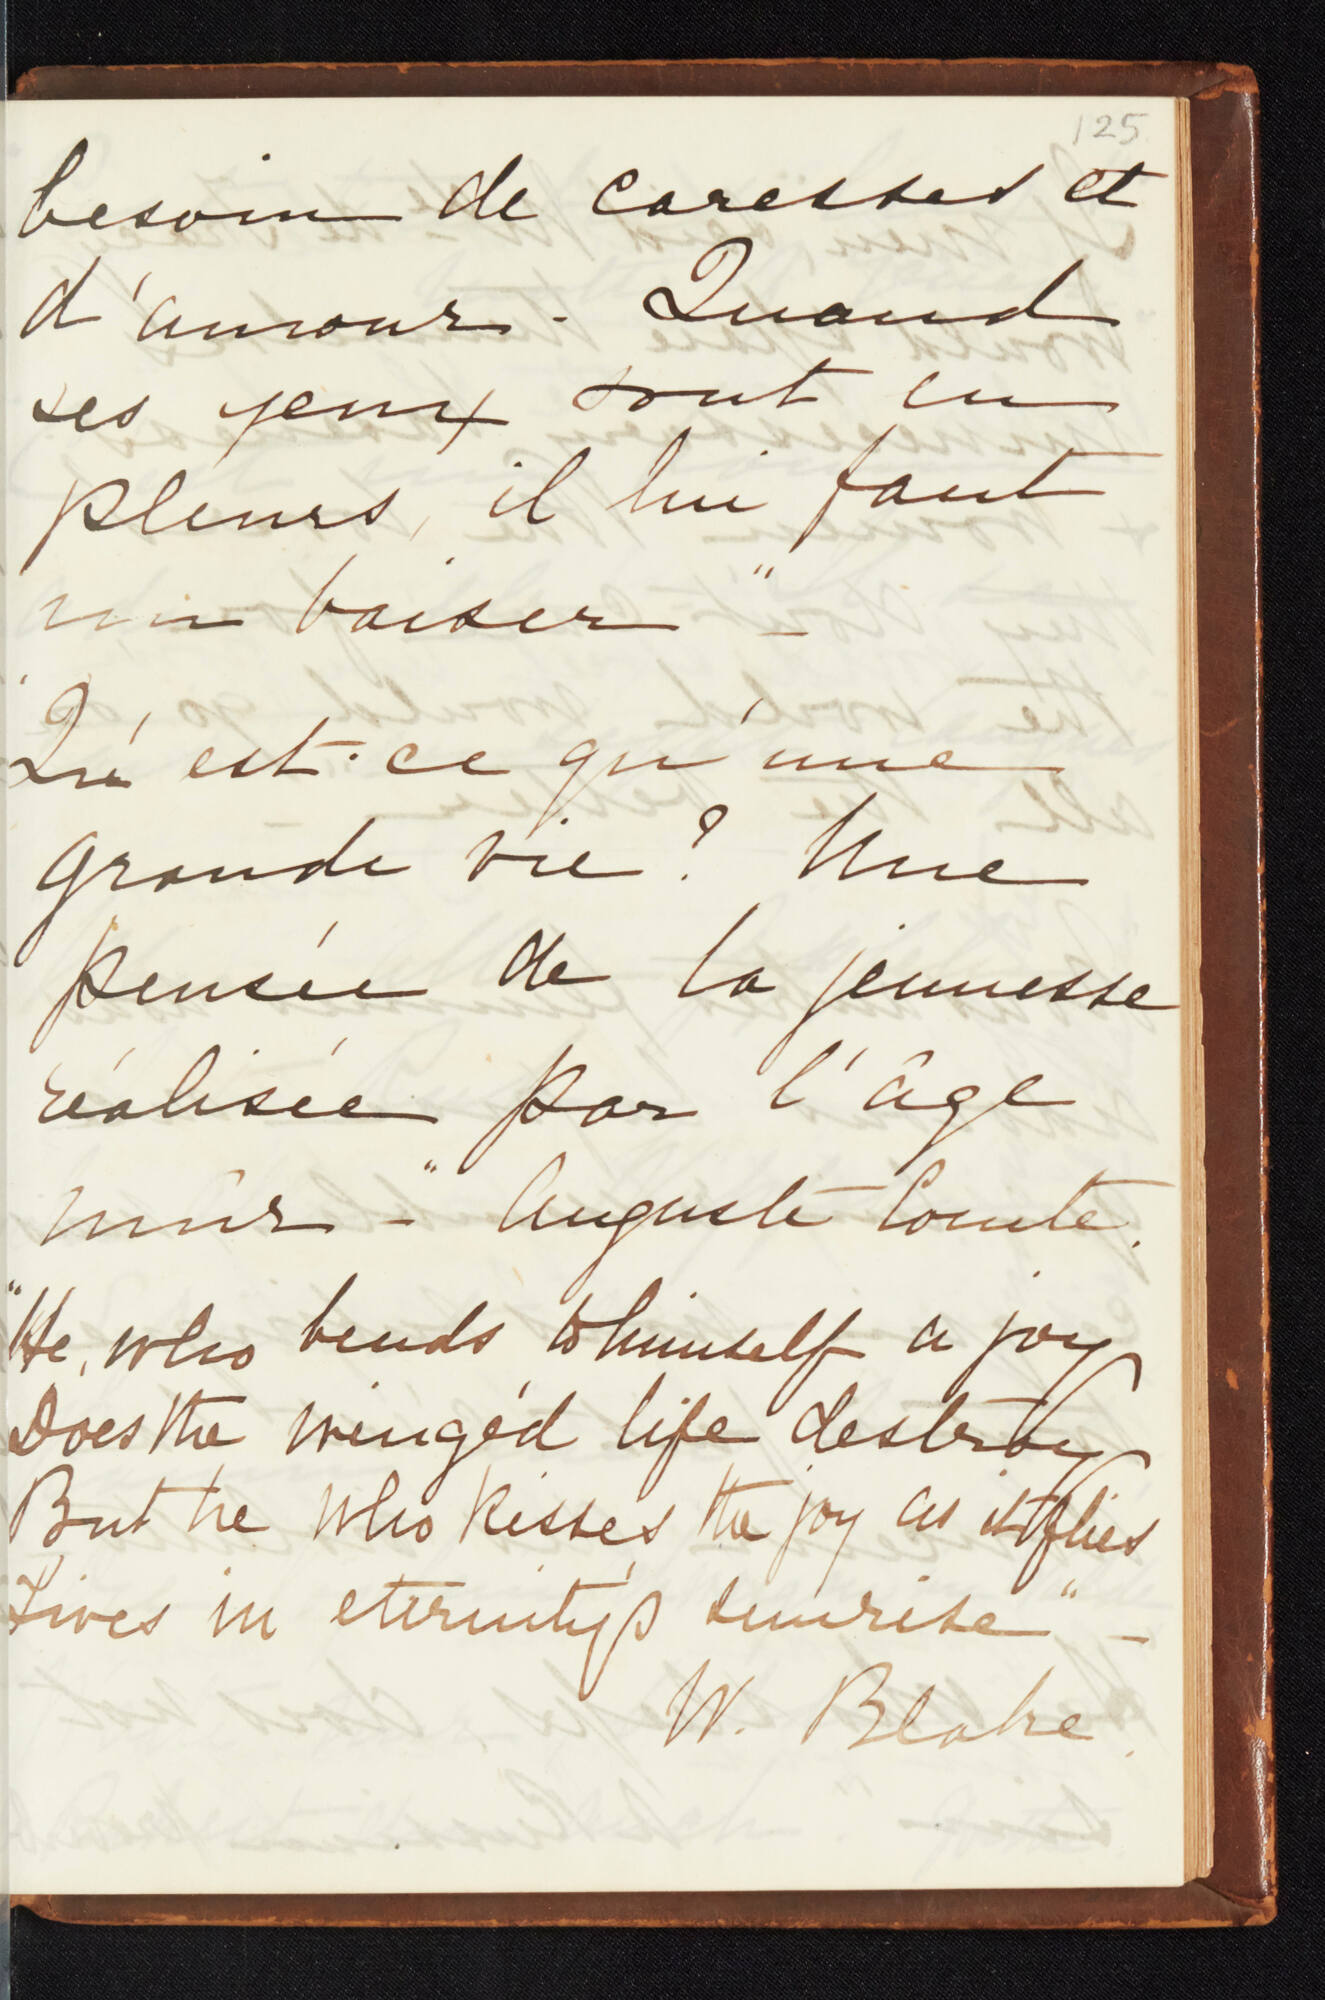 125
besoin de caresses et
d'amour. Quand
ses yeux sont en
pleurs, il lui faut
un baiser" -
"Qu'est-ce qu'une
grande vie? Une
pensée de la jeunesse
réalisée par l'âge
mûr -" Auguste Comte.
"He, who bends to himself a joy
Does the winged life destroy
But he who kisses the joy as it flies
Lives in eternity's sunrise" -
W. Blake.